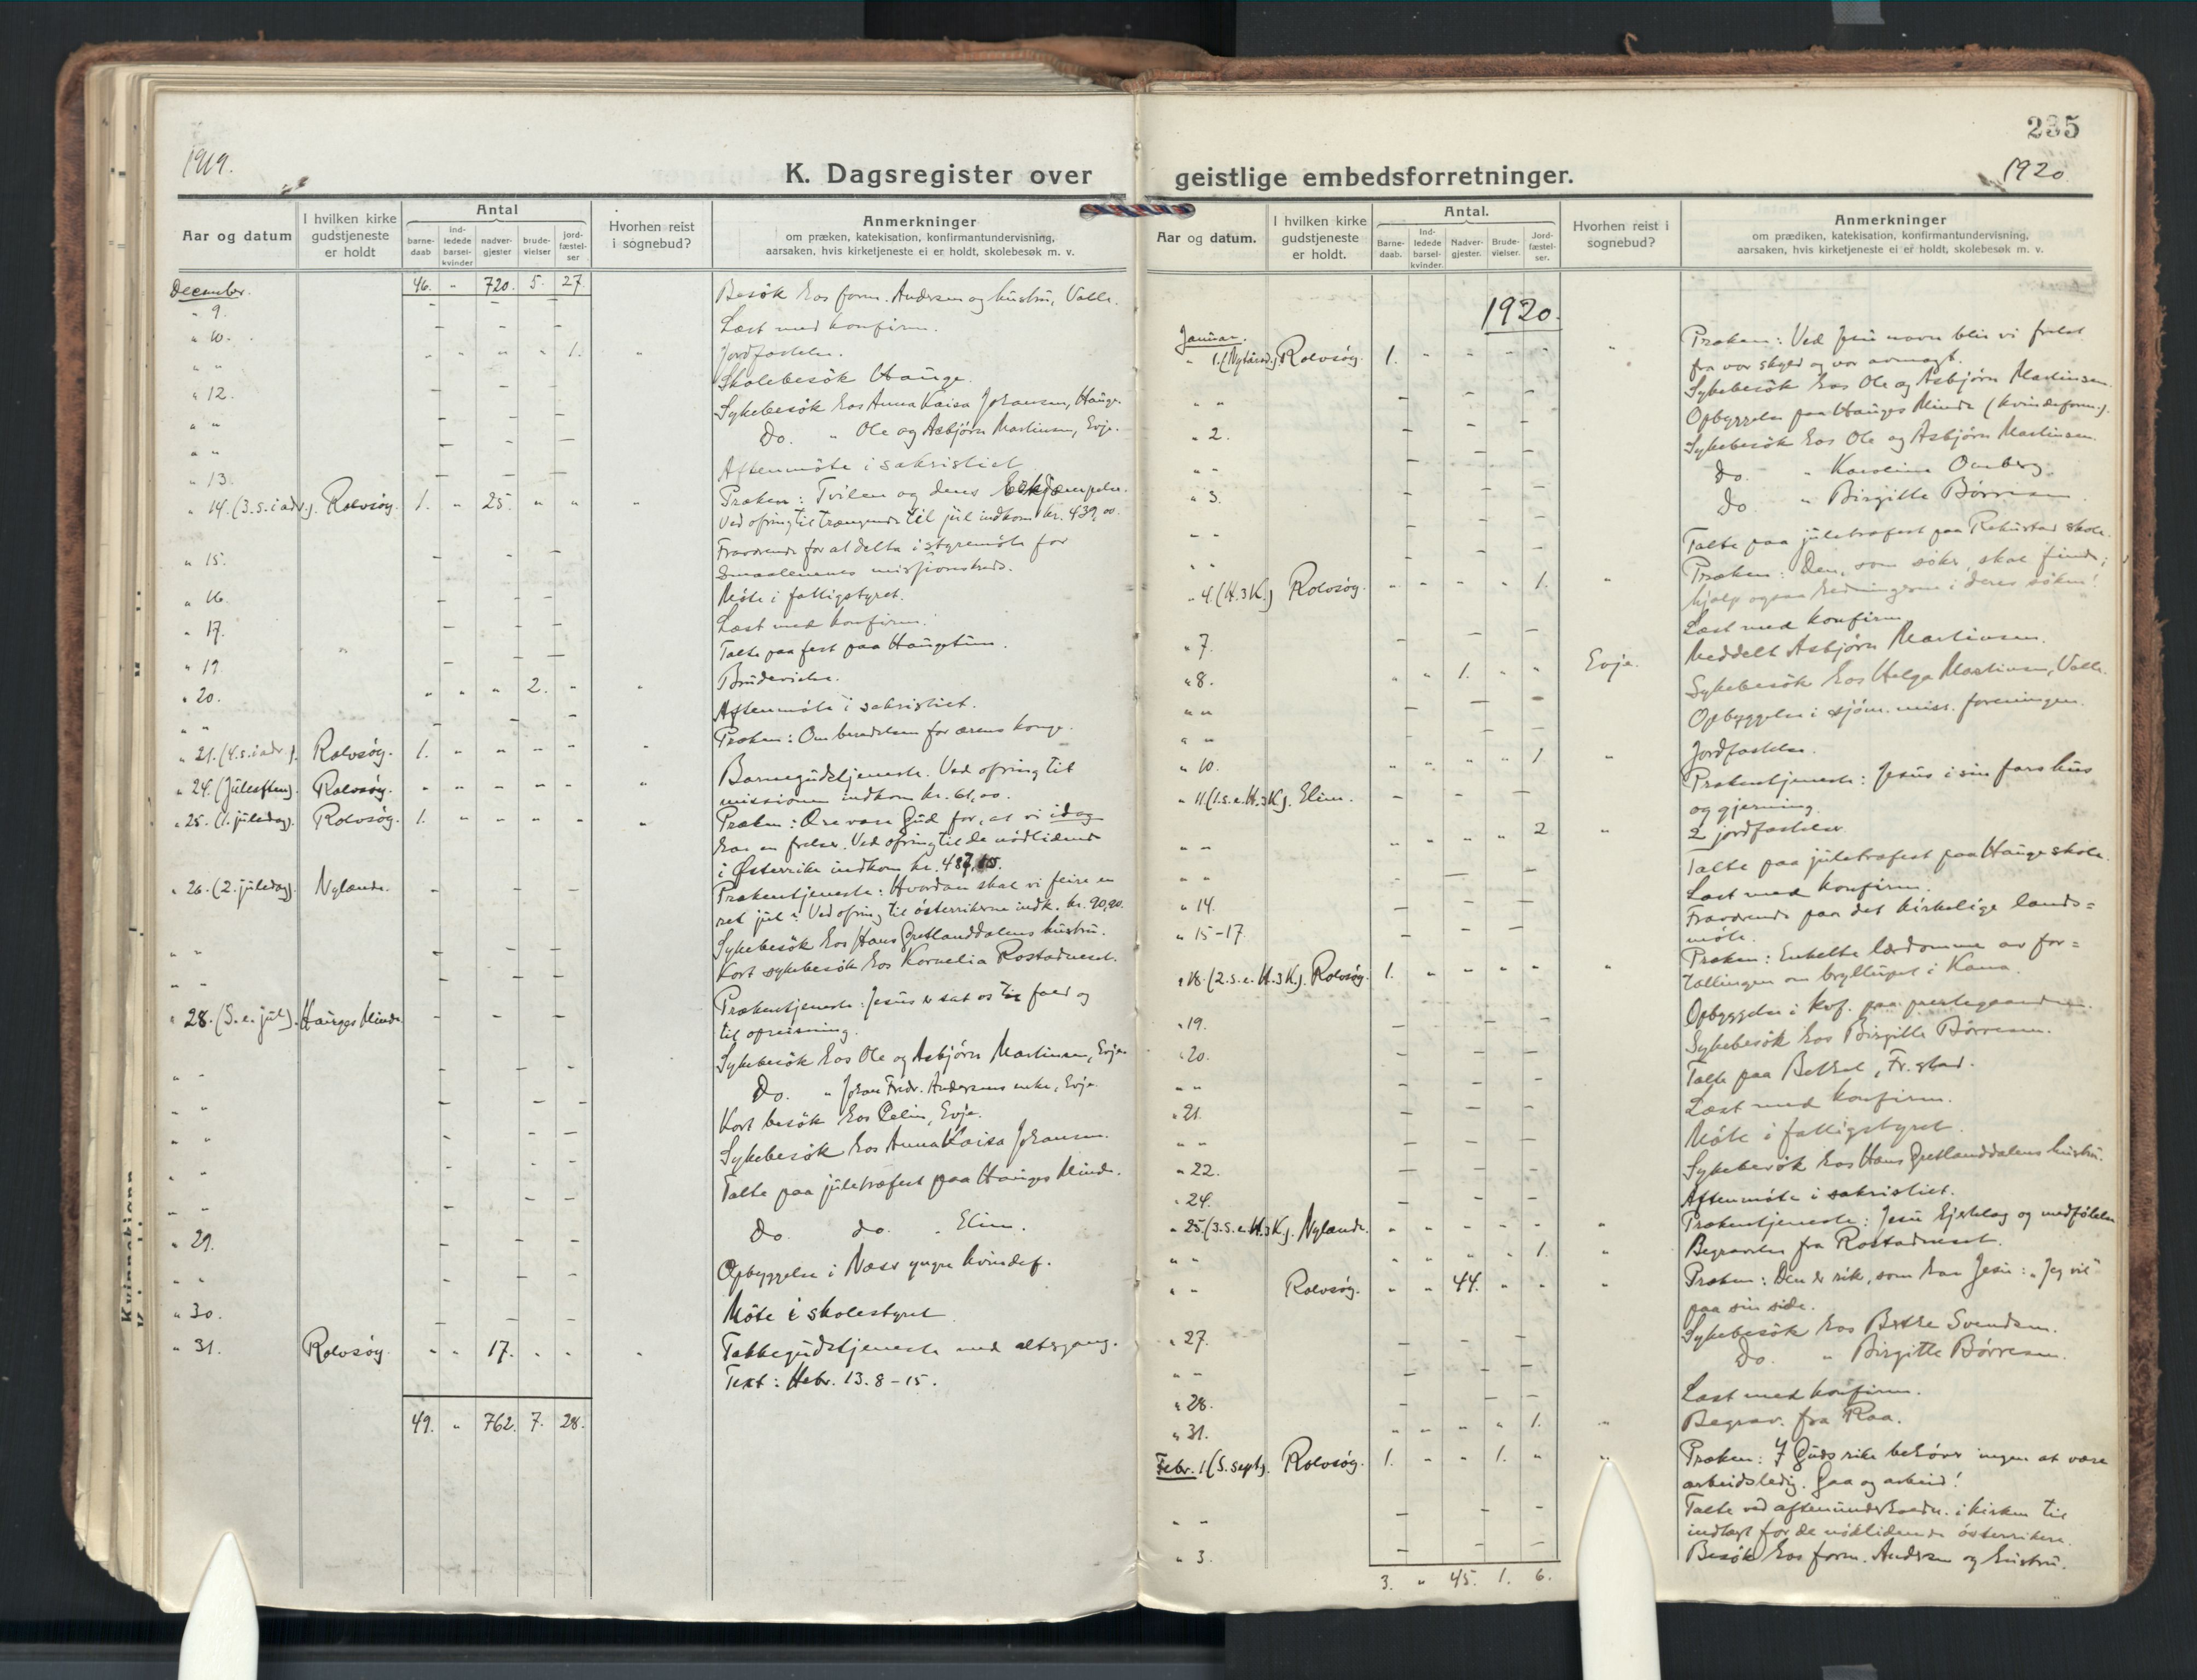 1919.
K. Dagsregister over
Aar og datum
I hvilken kirke gudstjeneste er holdt
Antal
barnedaab
indledede barselkvinder
nadvergjester
brudevielser
jordfæstelser
Hvorhen reist i sognebud?
Anmerkninger
om præken, katekisation, konfirmantundervisning,
aarsaken, hvis kirketjeneste ei er holdt, skolebesøk m. v.
December. 46. " 720. 5. 27
" 9. Besök hos form. Andersen og hustru, Valle.
" 10. Læst med konfirm.
" " 1. Jordfæstelse.
Skolebesök Hauge.
" 12. Sykebesök hos Anna Kaisa Johansen, Hauge.
" " Do. " Ole og Asbjörn Martinsen, Evje.
" 13. Aftenmöte i sakristiet
" 14. (3. s. i adv.). Rolvsöy. 1. " 25. " " Præken: Tvilen og dens bekjæmpelse.
Ved ofring til trængende til jul indkom kr. 439,00.
" 15. Fraværende for at delta i styremöte for
Smaalenenes missionskreds.
" 16. Möte i fattigstyret.
" 17. Læst med konfirm.
" 19. Talte paa fest paa Haugetun.
" 20. 2. Brudevielse.
" " Aftenmöte i sakristiet.
" 21. (4. s. i adv.). Rolvsöy. 1. Præken: Om beredelsen for ærens konge.
" 24. (Juleaften). Rolvsöy. Barnegudstjeneste. Ved ofring til
missionen indkom kr. 61,00.
" 25. (1. juledag). Rolvsöy. 1. Præken: Ære være Gud for, at vi idag
har en frelser. Ved ofring til de nödlidende
i Østerrike indkom kr. 487,15.
" 26. (2. juledag). Nylænde. Prækentjeneste: Hvordan skal vi feire en
ret jul? Ved ofring til österrikerne indk. kr. 90,90.
" " Sykebesök hos Hans Grætlanddalens hustru.
" " Kort sykebesök hos Kornelia Rostadneset.
" 28. (S. e. jul). Hauges Minde Prækentjeneste: Jesus er sat os til fald og
til opreisning.
" " Sykebesök hos Ole og Asbjörn Martinsen, Evje
" " Do. " Johan Fredr. Andersens enke, Evje.
" " Kort besök hos Pelin, Evje.
" " Sykebesök hos Anna Kaisa Johansen.
" " Talte paa juletræfest paa Hauges Minde.
" 29. Do. do. " Elim.
" " Opbyggelse i Næs yngre kvindef.
" 30. Möte i skolestyret
" 31. Rolvsöy. 17. Takkegudstjeneste med altergang.
Text: Hebr. 13. 8-15.
49. " 762. 7. 28.
235
1920
geistlige embedsforretninger.
Aar og datum.
I hvilken kirke gudstjeneste er holdt.
Antal.
Barnedaab.
Indledede barselkvinder.
Nadvergjester.
Brudevielser.
Jordfæstelser.
Hvorhen reist i sognebud?
Anmerkninger
om prædiken, katekisation, konfirmantundervisning,
aarsaken, hvis kirketjeneste ei er holdt, skolebesøk m. v.
1920.
Januar.
" 1. (Nytårsd.). Rolvsöy. 1. Præken: Ved Jesu navn blir vi frelst
fra vor skyld og vor avmagt.
" " Sykebesök hos Ole og Asbjörn Martinsen.
" 2. Opbyggelse paa Hauges Minde (kvindeforen.).
" " Sykebesök hos Ole og Asbjörn Martinsen.
" 3. Do. " Karoline Omberg.
" " Do " Birgitte Börresen.
" " Talte paa juletræfest paa Rekustad skole.
" 4. (H. 3 K.) Rolvsöy. 1. Præken: Den, som söker, skal finde;
hjælp ogsaa hedningerne i deres söken!
" 7. Læst med konfirm
" 8. 1. Evje. Meddelt Asbjörn Martinsen.
" " Sykebesök hos Helga Martinsen, Valle.
" " Opbyggelse i sjöm. miss. foreningen.
" 10. 1 Jordfæstelse.
" 11. (1. s. e. H. 3 K.). Elim. Prækentjeneste: Jesus i sin fars hus
og gjerning.
" " 2 2 jordfæstelser.
" " Talte paa juletræfest paa Hauge skole.
" 14. Læst med konfirm.
" 15-17 Fraværende paa det kirkelige lands=
möte.
" 18. (2. s. e. H. 3 K.). Rolvsöy. 1. Præken: Enkelte lærdomme av for=
tællingen om bryllupet i Kana.
" 19. Opbyggelse i kvf. paa prestegaarden.
" 20. Sykebesök hos Birgitte Börresen.
" " Talte paa Betel, Fr.stad.
" 21. Læst med konfirm.
" " Möte i fattigstyret.
" 22. Sykebesök hos Hans Grætlanddalens hustru.
" 24. Aftenmöte i sakristiet.
" 25. (3. s. e. H. 3 K.). Nylænde. Prækentjeneste: Jesu hjertelag og medfölelse
" " 1. Begravelse fra Rostadneset.
" " Rolvsöy. 44. Præken: Den er rik, som har Jesu: "Jeg vil"
paa sin side.
" 27. Sykebesök hos Berthe Svendsen.
" " Do. " Birgitte Börresen.
" 28. Læst med konfirm.
" 31. 1. Begrav. fra Raa.
Febr. 1 (S. sept.). Rolvsöy. 1. 1. Præken: I Guds rike behöver ingen at være
arbeidsledig. Gaa og arbeid!
" " Talte ved aftenunderholdn. i kirken til
indtægt for de nödlidende österrikere.
" 3. Besök hos form. Andersen og hustru.
3. " 45. 1. 6.